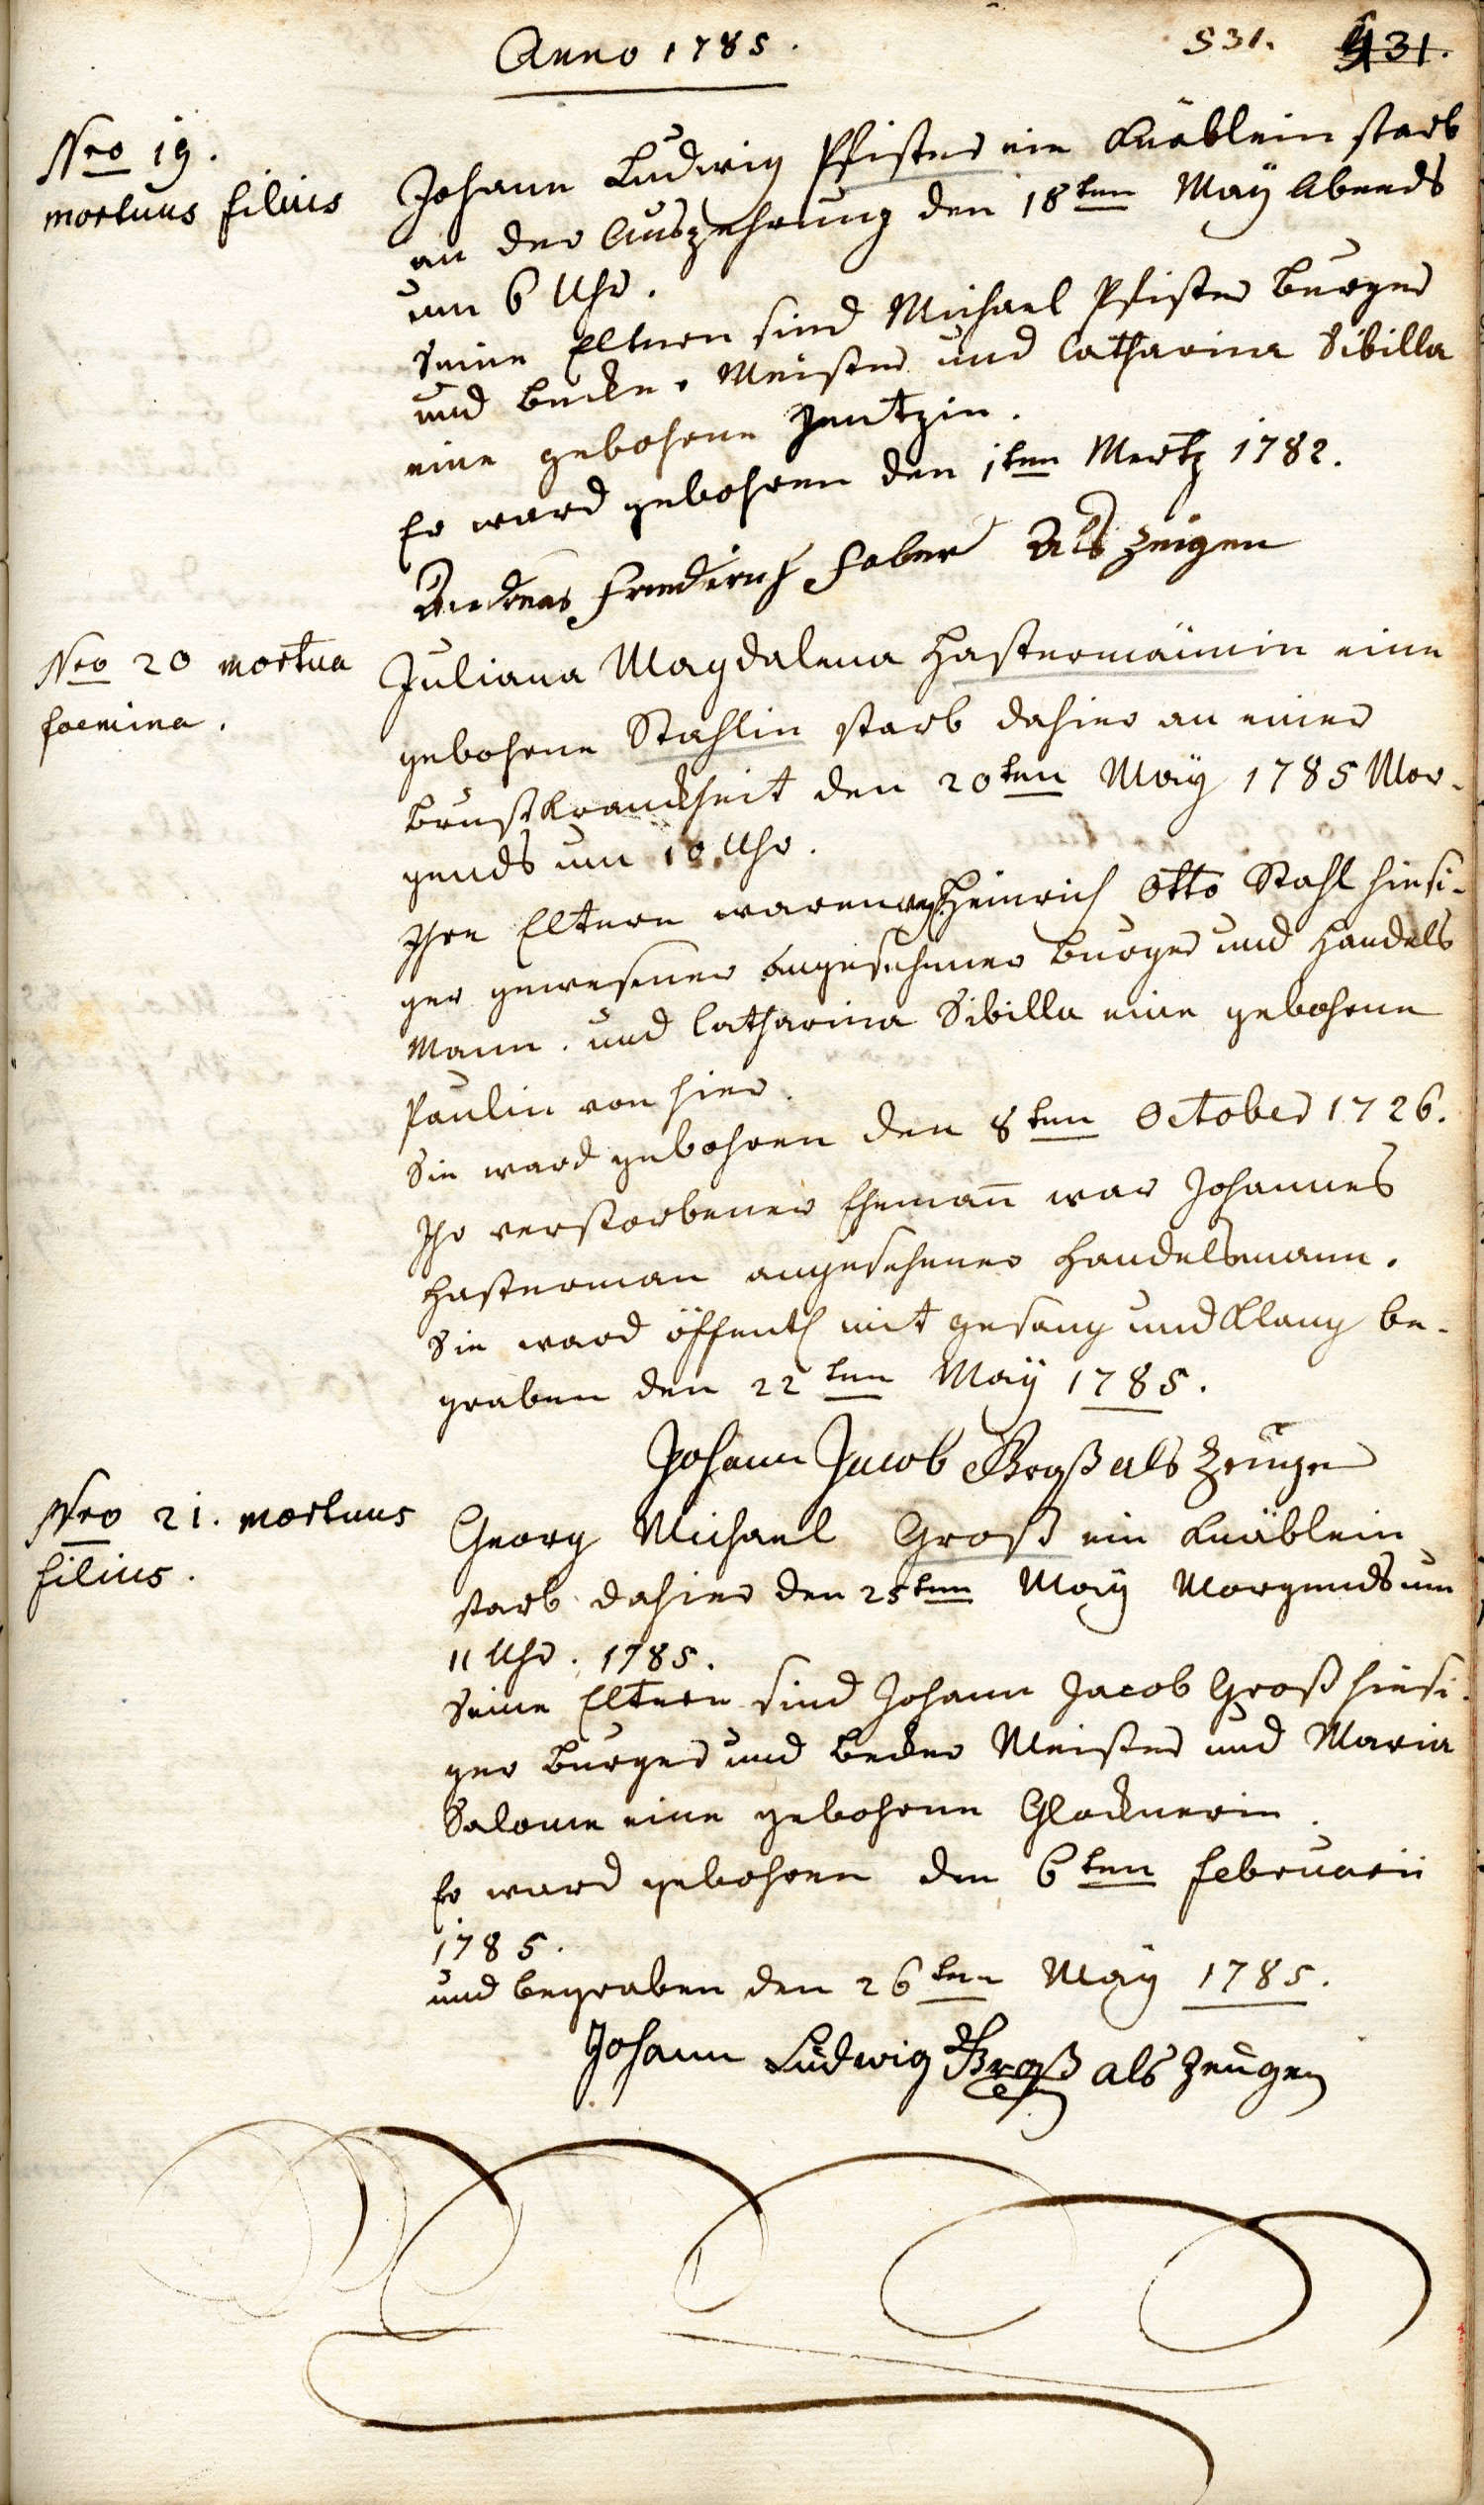 Anno 1785.
531. 431.
Nro 19.
mortuus filius
Johann Ludwig Pfister ein Knäblein starb
an der Auszehrung den 18ten Maÿ Abends
um 6 Uhr.
Seine Eltern sind Michael Pfister Burger
und Becker-Meister und Catharina Sibilla
eine gebohrne Zentzin.
Er ward gebohren den 1ten Mertz 1782.
Andreas Friederich Faber Als Zeigen
Nro 20 mortua
foemina.
Juliana Magdalena Hastermännin eine
gebohrne Stahlin starb dahier an einer
Brustkranckheit den 20ten Maÿ 1785 Mor-
gends um 10 Uhr.
Ihre Eltern waren Heinrich Otto Stahl hiesi-
ger gewesener angesehener Burger und Handels
Mann. und Catharina Sibilla eine gebohrne
Paulin von hier.
Sie ward gebohren den 8ten October 1726.
Ihr verstorbener Ehemann̄ war Johannes
Hasterman angesehener Handelsmann.
Sie ward öffentl mit gesang und Klang be-
graben den 22ten Maÿ 1785.
Johann Jacob Groß als Zeuge
Nro 21. mortuus
filius.
Georg Michael Groß ein Knäblein
starb dahier den 25ten Maÿ Morgends um
11 Uhr. 1785.
Seine Eltern sind Johann Jacob Groß hiesi-
ger Burger und Becker Meister und Maria
Salome eine gebohrne Glocknerin.
Er ward gebohren den 6ten Februarii
1785.
und begraben den 26ten Maÿ 1785.
Johann Ludwig Groß als Zeugen